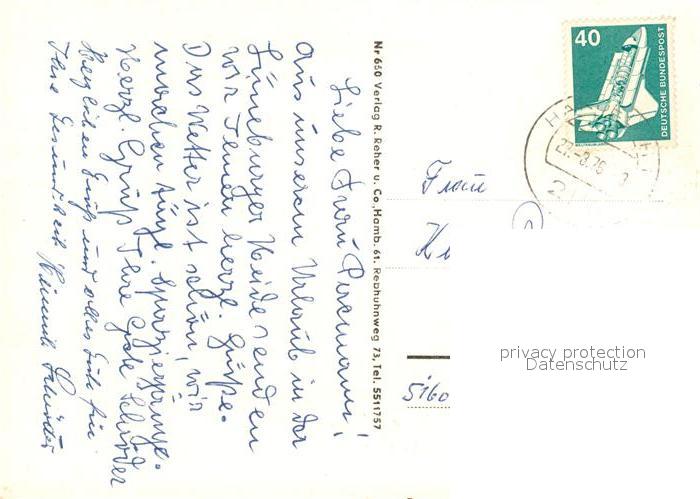 Liebe Frau Peremann!
Aus unserem Urlaub in der
Lüneburger Heide senden
wir Ihnen herzl. Grüße.
Das Wetter ist schön, wir
machen tägl. Spaziergänge.
Herzl. Grüß Ihre Gyde Schröder
Herzlichen Gruß und alles Gute für
Ihre Gesundheit Schröder
Nr 650 Verlag R. Reher u. Co., Hamb. 61, Rephuhnweg 73, Tel. 5511757
40
DEUTSCHE BUNDESPOST
27.-8.76
21
Frau
privacy protection
Datenschutz